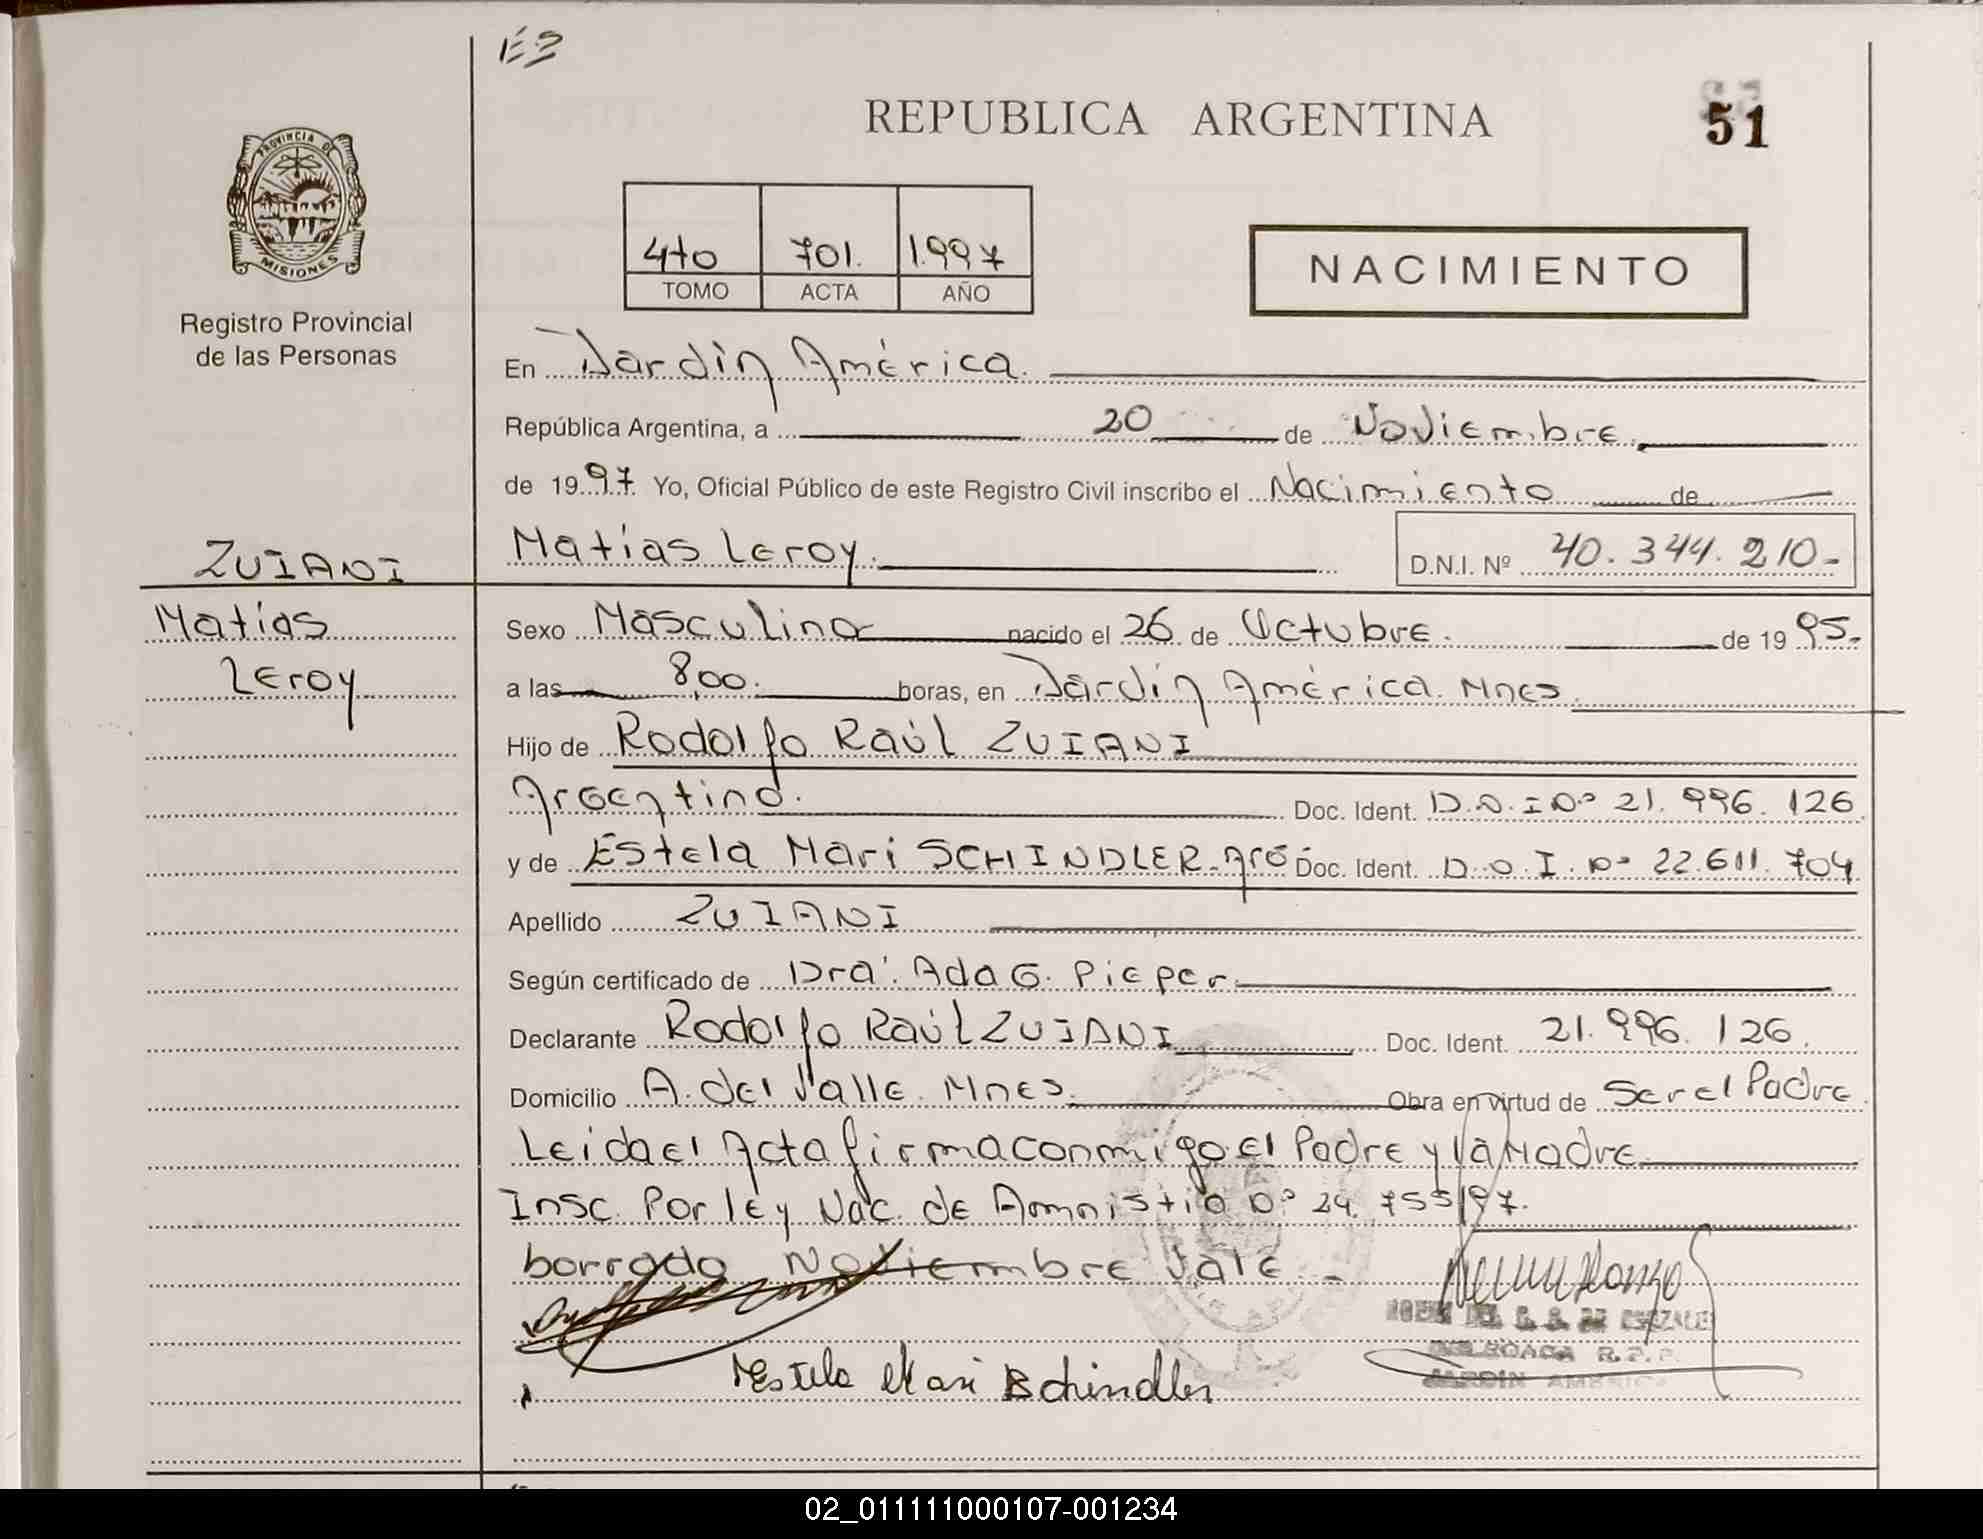 E3
REPUBLICA ARGENTINA
51
PROVINCIA DE
MISIONES
Registro Provincial
de las Personas
4to 701. 1.997
TOMO ACTA AÑO
NACIMIENTO
En Jardín América.
República Argentina, a 20 de Noviembre.
de 1997. Yo, Oficial Público de este Registro Civil inscribo el Nacimiento de
Matías Leroy. D.N.I. Nº 40.344.210-
ZUIANI
Matías
Leroy
Sexo Masculino nacido el 26 de Octubre. de 1995.
a las 8,00. horas, en Jardín América. Mnes.
Hijo de Rodolfo Raúl ZUIANI
Argentino. Doc. Ident. D.N.I Nº 21.996.126
y de Estela Mari SCHINDLER. Arg. Doc. Ident. D.N.I. Nº 22.611.704
Apellido ZUIANI
Según certificado de Dra. Ada G. Pieper
Declarante Rodolfo Raúl ZUIANI Doc. Ident. 21.996.126.
Domicilio A. del Valle. Mnes. Obra en virtud de Ser el Padre
Leida el Acta firma conmigo El Padre y la Madre
Insc. Por ley Nac. de Amnistia Nº 24.755/97.
borrado Noviembre Vale -
Estela Mari Schindler
JARDIN AMERICA
02_011111000107-001234